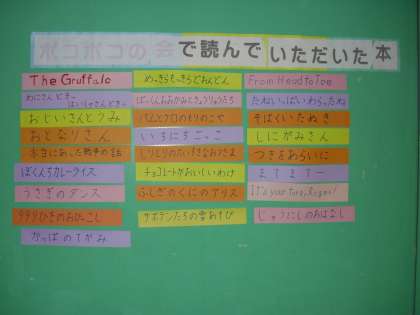 ポコポコの会で読んでいただいた本
The Gruffalo
めっきらもっきらどおんどん
From Head To Toe
わにさんどきっ
はいしゃさんどきっ
たねいっぱいわらったね
おじいさんとうみ
パパとクロのもりのこや
そばくいたぬき
おとなりさん
いちにちごっこ
しにがみさん
本当にあった戦争の話
しりとりのだいすきなおうさま
つきをあらいに
ぼくんちカレーライス
チョコレートがおいしいわけ
ますますー
うさぎのダンス
ふしぎのくにのアリス
It's your turn, Roger!
999ひきのおひっこし
サボテンたちの雪あそび
じゅうにしのおはなし
かっぱのてがみ